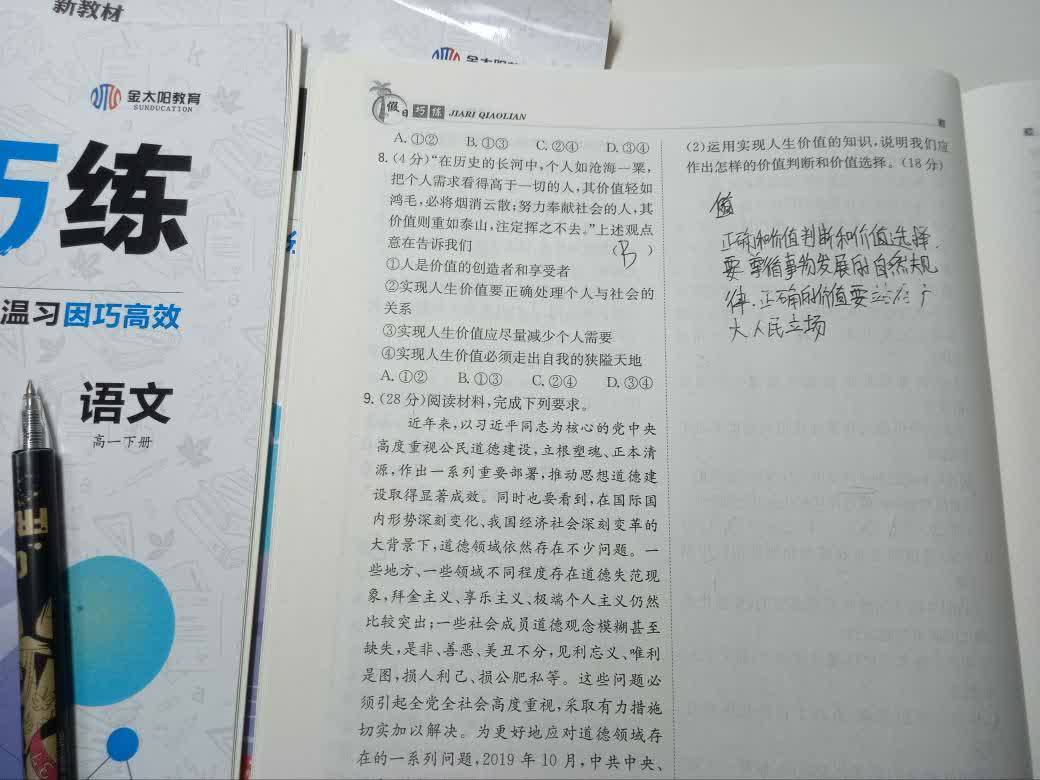 新教材
金太阳教育
SUNDUCATION
巧练
温习因巧高效
语文
高一下册
假日巧练 JIARI QIAOLIAN
A. ①② B. ①③ C. ②④ D. ③④
8. (4 分)“在历史的长河中,个人如沧海一粟,
把个人需求看得高于一切的人,其价值轻如
鸿毛,必将烟消云散;努力奉献社会的人,其
价值则重如泰山,注定挥之不去。”上述观点
意在告诉我们 ( B )
①人是价值的创造者和享受者
②实现人生价值要正确处理个人与社会的
关系
③实现人生价值应尽量减少个人需要
④实现人生价值必须走出自我的狭隘天地
A. ①② B. ①③ C. ②④ D. ③④
9. (28 分)阅读材料,完成下列要求。
近年来,以习近平同志为核心的党中央
高度重视公民道德建设,立根塑魂、正本清
源,作出一系列重要部署,推动思想道德建
设取得显著成效。同时也要看到,在国际国
内形势深刻变化、我国经济社会深刻变革的
大背景下,道德领域依然存在不少问题。一
些地方、一些领域不同程度存在道德失范现
象,拜金主义、享乐主义、极端个人主义仍然
比较突出;一些社会成员道德观念模糊甚至
缺失,是非、善恶、美丑不分,见利忘义、唯利
是图,损人利己、损公肥私等。这些问题必
须引起全党全社会高度重视,采取有力措施
切实加以解决。为更好地应对道德领域存
在的一系列问题,2019 年 10 月,中共中央、
(2)运用实现人生价值的知识,说明我们应
作出怎样的价值判断和价值选择。(18 分)
正确的价值判断和价值选择.
要遵循事物发展的自然规
律.正确的价值要站在广
大人民立场